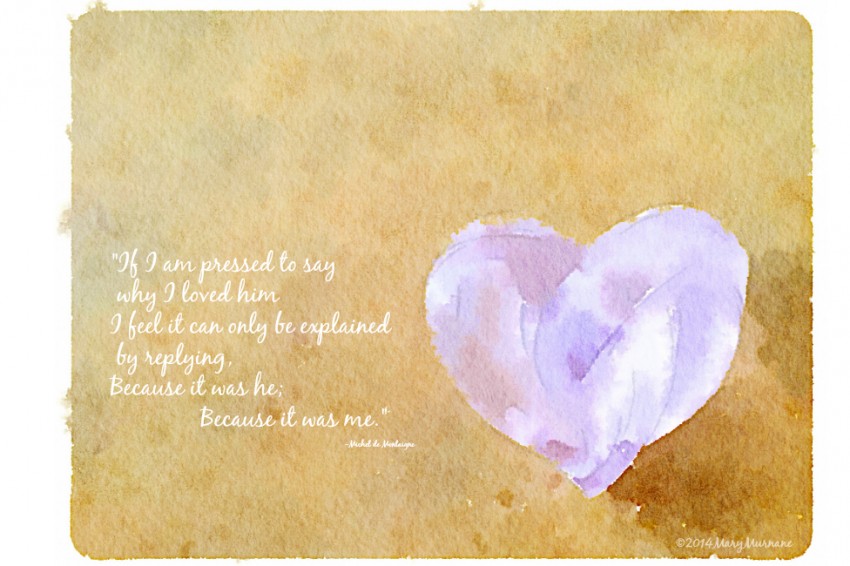 "If I am pressed to say
why I loved him
I feel it can only be explained
by replying,
Because it was he;
Because it was me."
-Michel de Montaigne
©2014 Mary Murnane